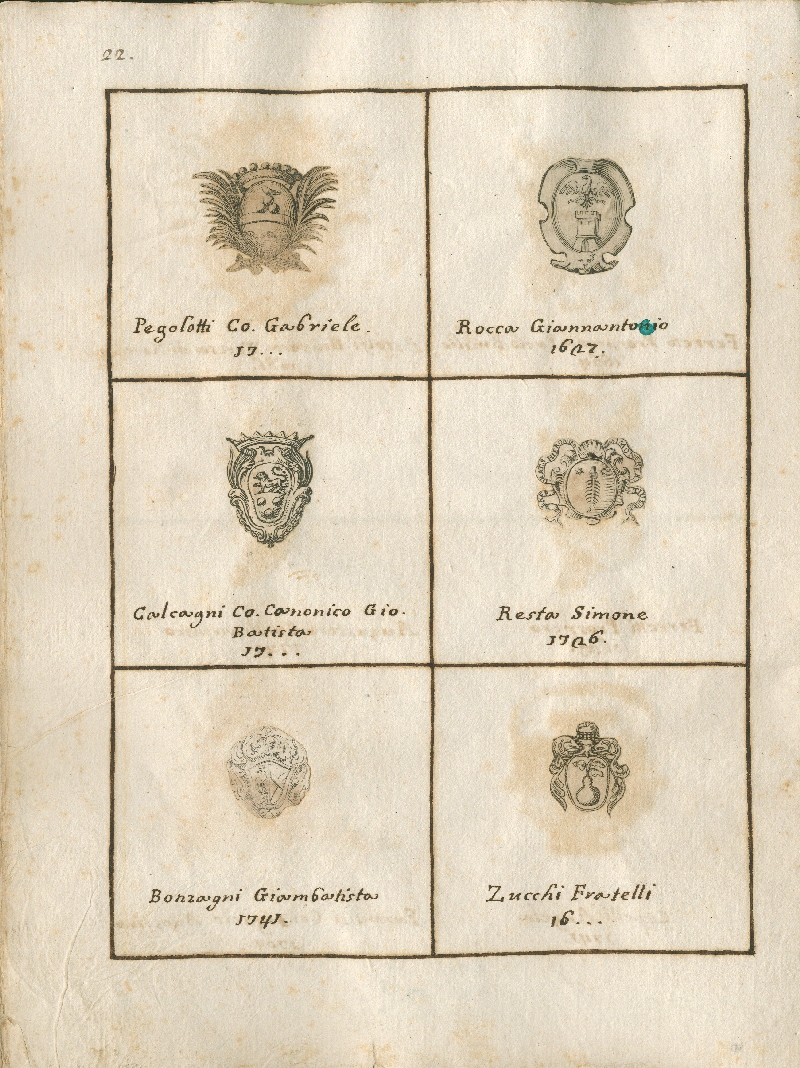 22.
Pegolotti Co. Gabriele.
17...
Rocca
1627.
Calcagni Co. Canonico Gio.
Batista
17...
Resta Simone
1726.
Bonzagni Giambatista
1741.
Zucchi Fratelli
16...